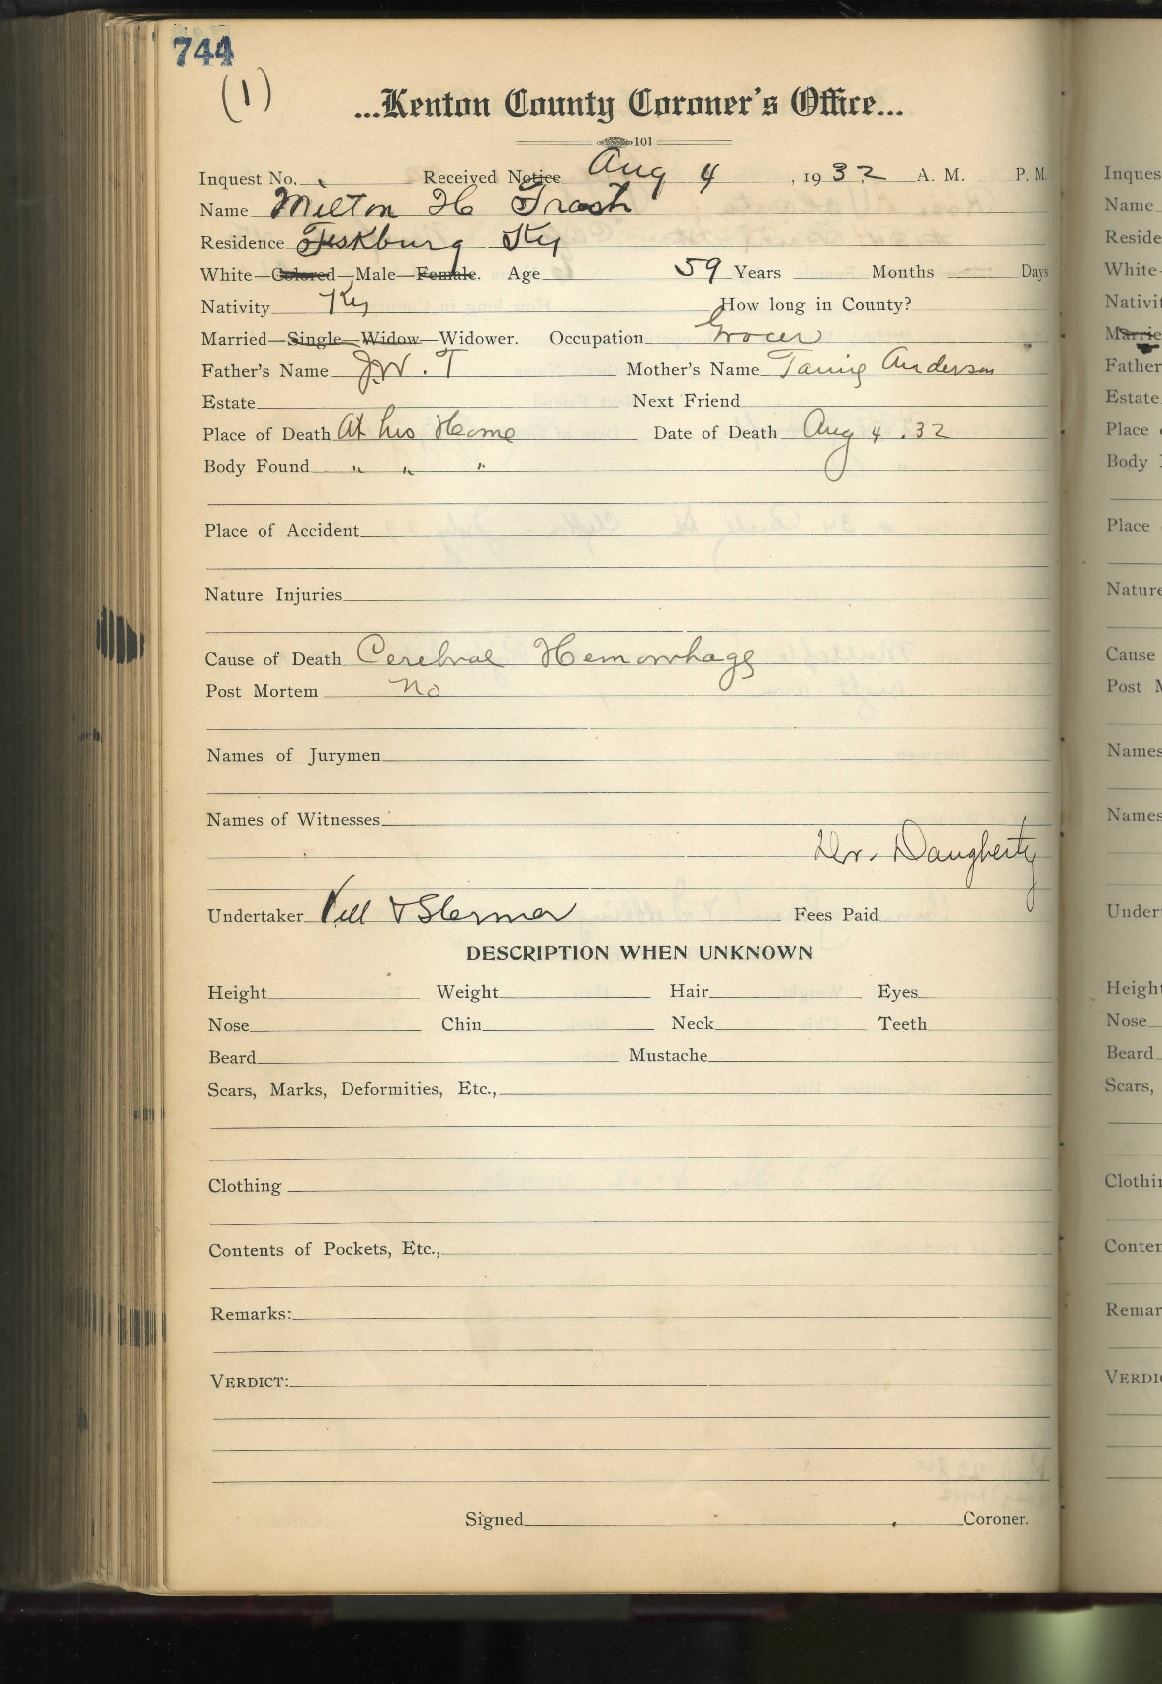 744
(1)
...Kenton County Coroner's Office...
101
Inquest No. Received Notice Aug 4, 1932 A. M. P. M.
Name Milton H Trash
Residence Fiskburg Ky
White—Colored—Male—Female. Age 59 Years Months Days
Nativity Ky How long in County?
Married—Single—Widow—Widower. Occupation Grocer
Father's Name J.W. T Mother's Name Anderson
Estate Next Friend
Place of Death At his Home Date of Death Aug 4 . 32
Body Found " " "
Place of Accident
Nature Injuries
Cause of Death Cerebral Hemorrhage
Post Mortem No
Names of Jurymen
Names of Witnesses
Dr. Daugherty
Undertaker Fees Paid
DESCRIPTION WHEN UNKNOWN
Height Weight Hair Eyes
Nose Chin Neck Teeth
Beard Mustache
Scars, Marks, Deformities, Etc.,
Clothing
Contents of Pockets, Etc.,
Remarks:
VERDICT:
Signed Coroner.
Inques
Name
Reside
White—
Nativit
Marrie
Father
Estate
Place
Body
Place
Nature
Cause
Post M
Names
Names
Under
Height
Nose
Beard
Scars,
Clothin
Conten
Remar
VERDIC